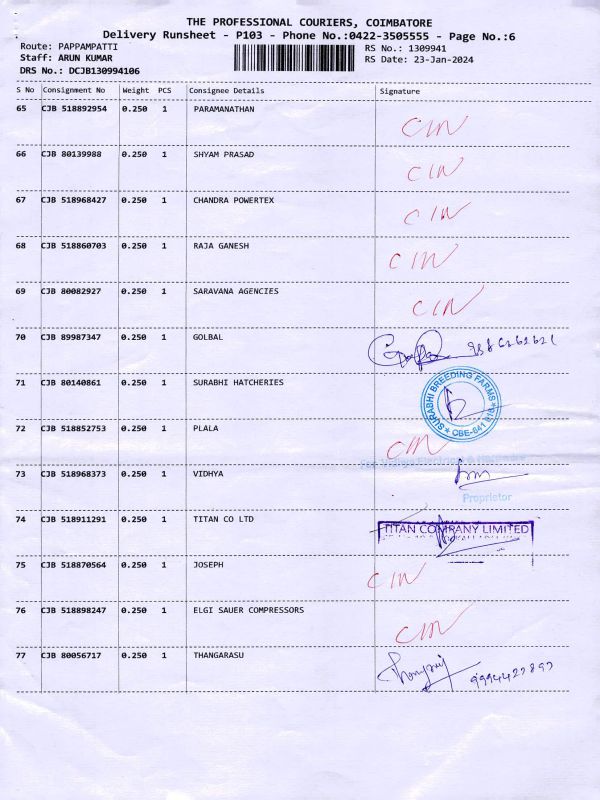 THE PROFESSIONAL COURIERS, COIMBATORE
Delivery Runsheet - P103 - Phone No.:0422-3505555 - Page No.:6
Route: PAPPAMPATTI RS No.: 1309941
Staff: ARUN KUMAR RS Date: 23-Jan-2024
DRS No.: DCJB130994106
S No Consignment No Weight PCS Consignee Details Signature
65 CJB 518892954 0.250 1 PARAMANATHAN CIN
66 CJB 80139988 0.250 1 SHYAM PRASAD CIN
67 CJB 518968427 0.250 1 CHANDRA POWERTEX CIN
68 CJB 518860703 0.250 1 RAJA GANESH CIN
69 CJB 80082927 0.250 1 SARAVANA AGENCIES CIN
70 CJB 89987347 0.250 1 GOLBAL
71 CJB 80140861 0.250 1 SURABHI HATCHERIES
SURABHI BREEDING FARMS
CBE-641
72 CJB 518852753 0.250 1 PLALA CIN
73 CJB 518968373 0.250 1 VIDHYA
Proprietor
74 CJB 518911291 0.250 1 TITAN CO LTD TITAN COMPANY LIMITED
75 CJB 518870564 0.250 1 JOSEPH CIN
76 CJB 518898247 0.250 1 ELGI SAUER COMPRESSORS CIN
77 CJB 80056717 0.250 1 THANGARASU